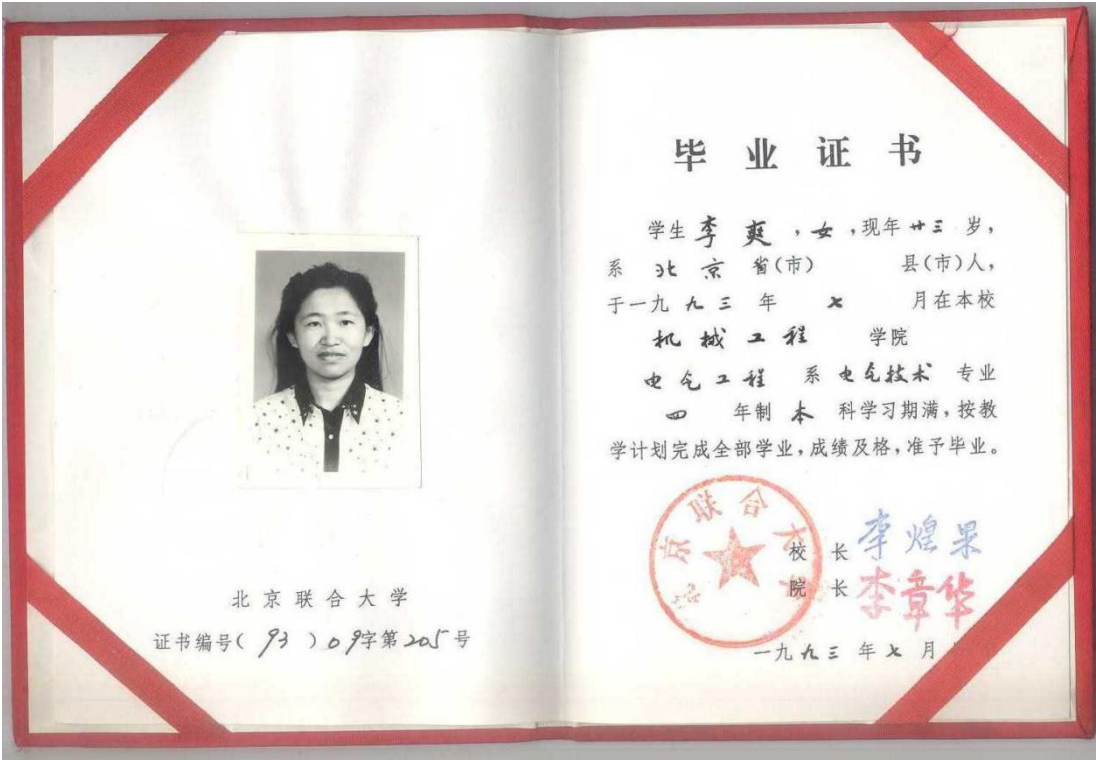 北京联合大学
证书编号(93)09字第205号
毕业证书
学生李爽,女,现年廿三岁,
系北京省(市) 县(市)人,
于一九九三年 七 月在本校
机械工程 学院
电气工程 系电气技术 专业
四 年制 本 科学习期满,按教
学计划完成全部学业,成绩及格,准予毕业。
北京联合大学
校 长 李煌果
院 长 李章华
一九九三年七月